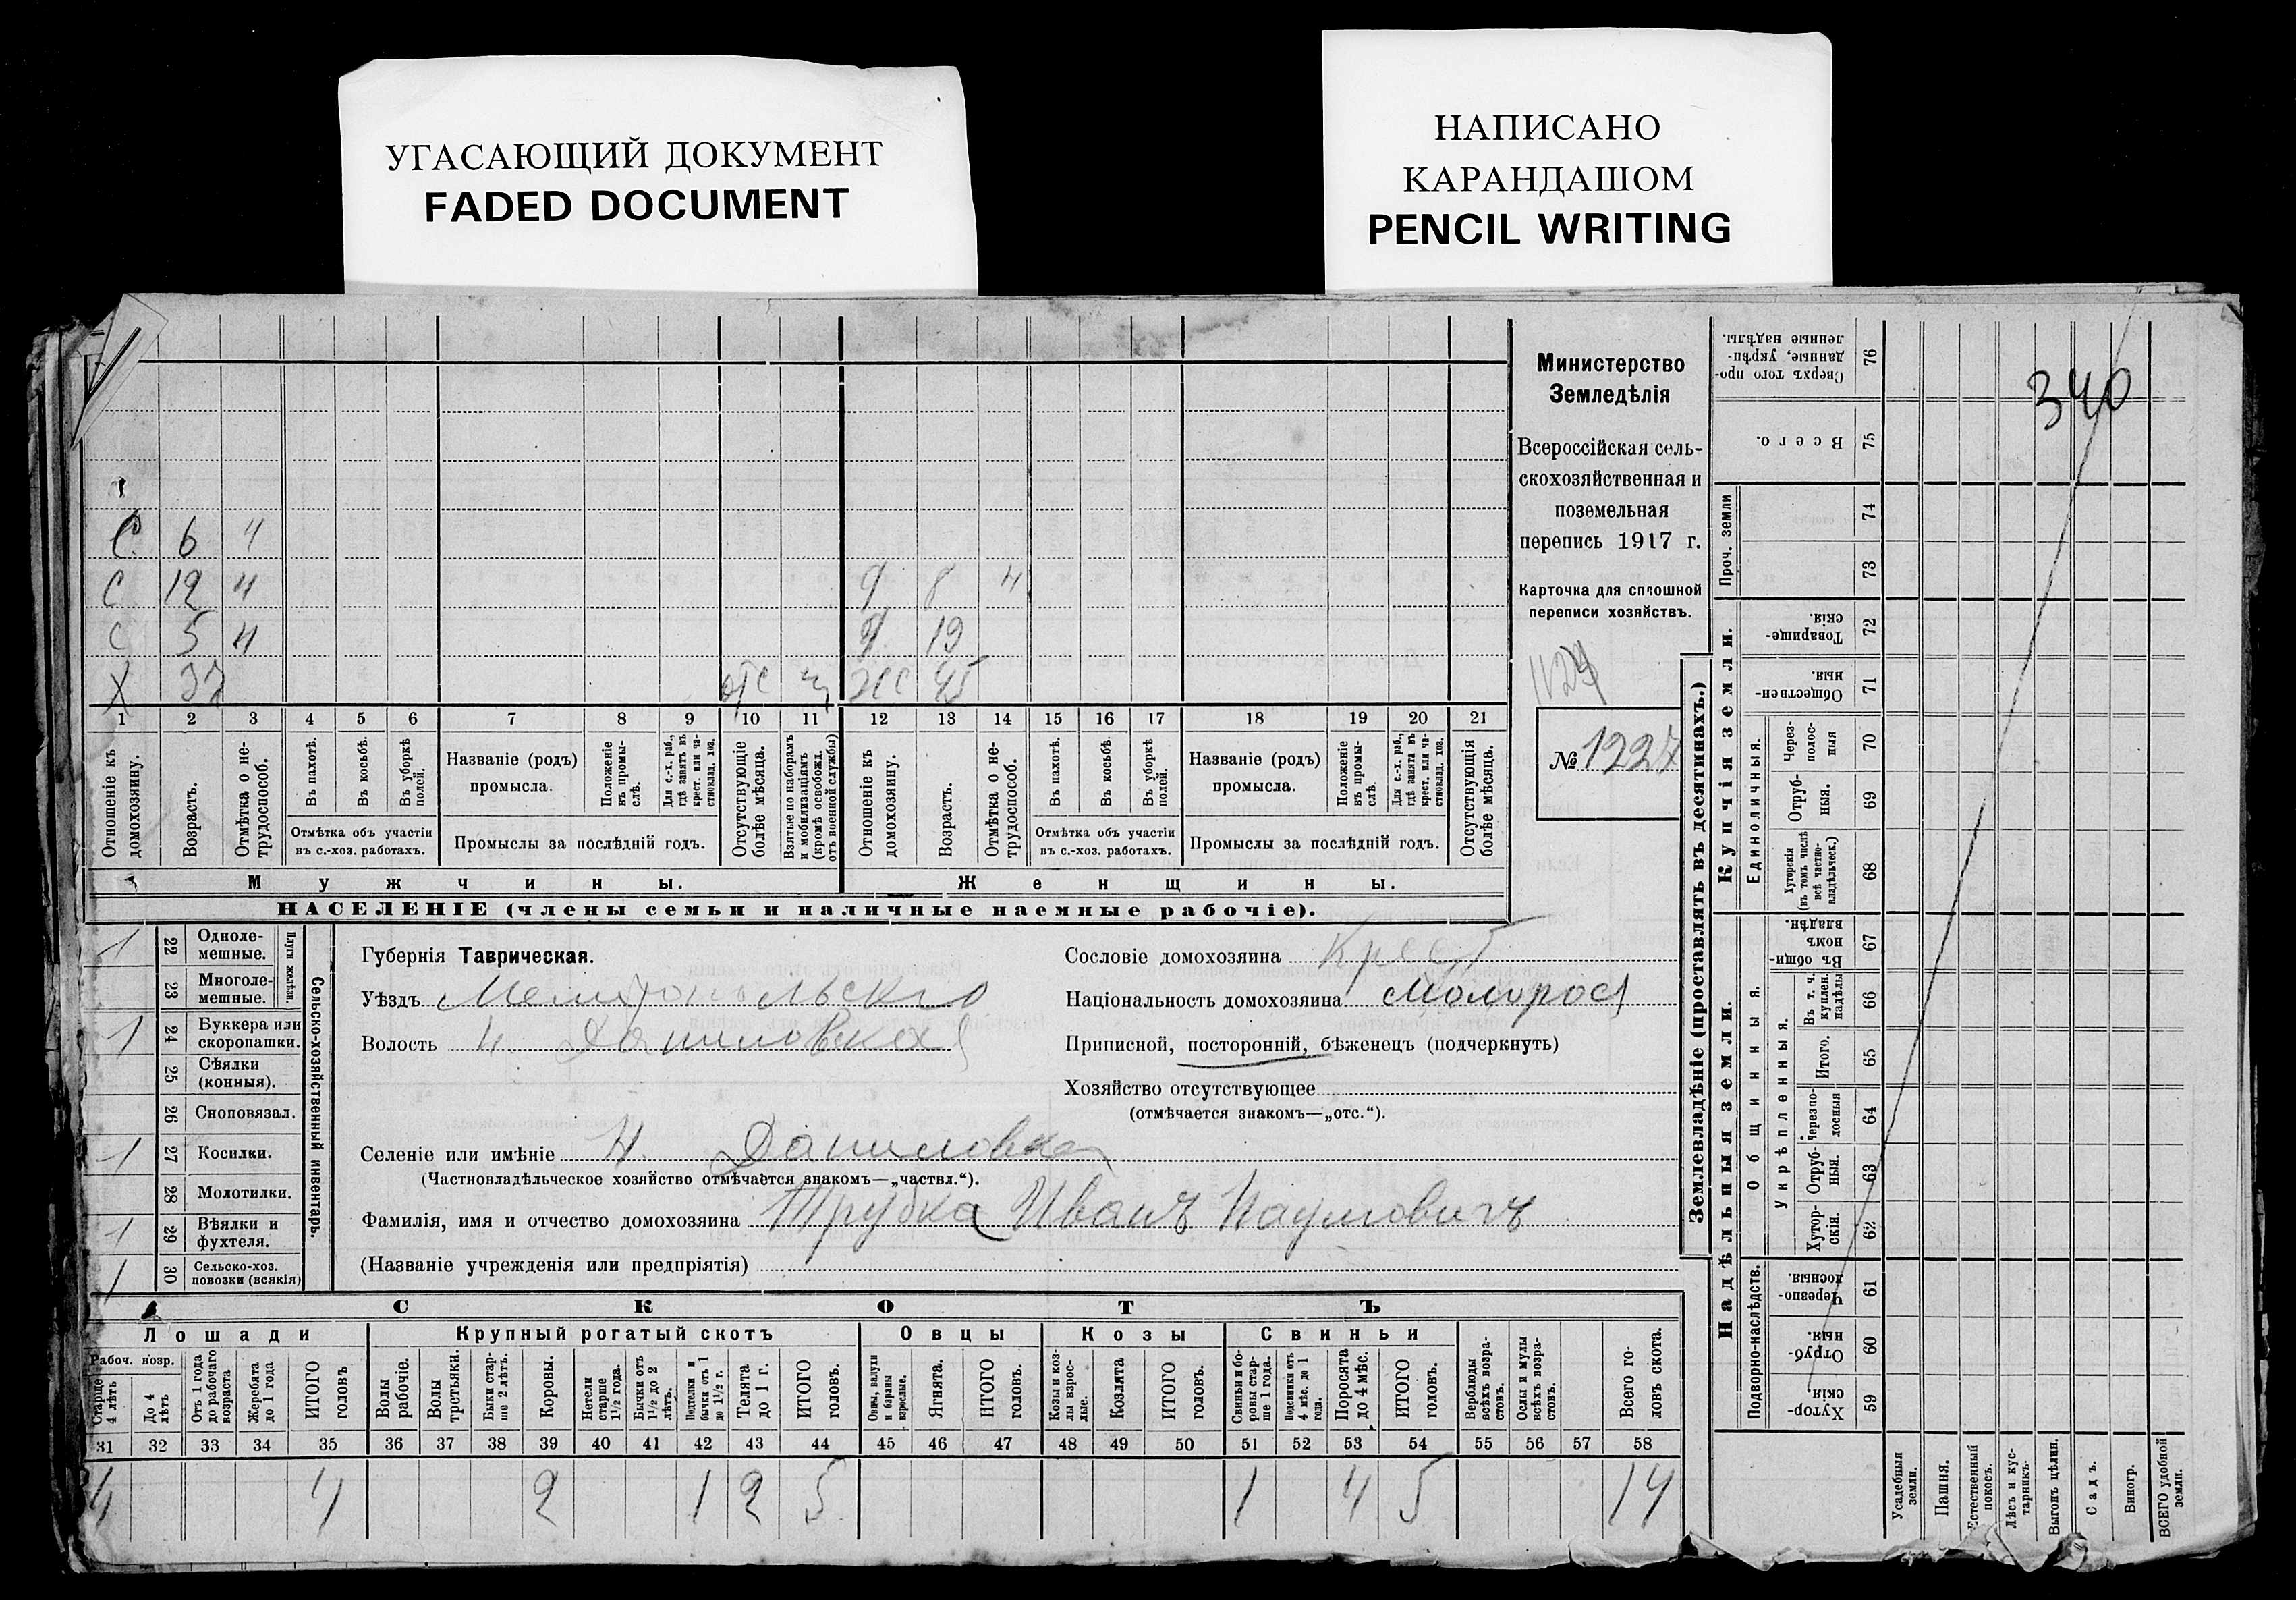 УГАСАЮЩИЙ ДОКУМЕНТ
FADED DOCUMENT
НАПИСАНО
КАРАНДАШОМ
PENCIL WRITING
340
С. 6 4
С 12 4 д 8 4
С 5 4 д. 19
Х 37 отс ж 45
1 2 3 4 5 6 7 8 9 10 11 12 13 14 15 16 17 18 19 20 21
Отношеніе къ домохозяину.
Возрастъ.
Отмѣтка о не-трудоспособ.
Въ пахотѣ.
Въ косьбѣ.
Въ уборкѣ полей.
Отмѣтка объ участіи
въ с.-хоз. работахъ.
Названіе (родъ)
промысла.
Положеніе въ промы-слѣ.
Для с.-х. раб., гдѣ занятъ въ крест. или ча-стновлад. хоз.
Промыслы за послѣдній годъ.
Отсутствующіе болѣе мѣсяца.
Взятые по наборамъ и мобилизаціямъ (кромѣ освобожд. отъ военной службы)
Отношеніе къ домохозяину.
Возрастъ.
Отмѣтка о не-трудоспособ.
Въ пахотѣ.
Въ косьбѣ.
Въ уборкѣ полей.
Отмѣтка объ участіи
въ с.-хоз. работахъ.
Названіе (родъ)
промысла.
Положеніе въ промы-слѣ.
Для с.-х. раб., гдѣ занята въ крест. или ча-стновлад. хоз.
Промыслы за послѣдній годъ.
Отсутствующія болѣе мѣсяца.
Мужчины.
Женщины.
НАСЕЛЕНІЕ (члены семьи и наличные наемные рабочіе).
Министерство
Земледѣлія
Всероссійская сель-
скохозяйственная и
поземельная
перепись 1917 г.
Карточка для сплошной
переписи хозяйствъ.
№ 1227
Сельско-хозяйственный инвентарь.
Плуги желѣзн.
1 22 Одноле-мешные.
23 Многоле-мешные.
1 24 Буккера или скоропашки.
25 Сѣялки (конныя).
26 Сноповязал.
1 27 Косилки.
28 Молотилки.
1 29 Вѣялки и фухтеля.
1 30 Сельско-хоз. повозки (всякія)
Губернія Таврическая.
Уѣздъ Мелитопольскго
Волость Н. Даниловка
Сословіе домохозяина Крест
Національность домохозяина Малорос
Приписной, посторонній, бѣженецъ (подчеркнуть)
Хозяйство отсутствующее
(отмѣчается знакомъ—„отс.“).
Селеніе или имѣніе Н. Даниловка
(Частновладѣльческое хозяйство отмѣчается знакомъ—„частвл.“).
Фамилія, имя и отчество домохозяина Трубка Иванъ Наумовичъ
(Названіе учрежденія или предпріятія)
СКОТЪ
Лошади
Крупный рогатый скотъ
Овцы
Козы
Свиньи
Рабоч. возр.
Старше 4 лѣтъ
До 4 лѣтъ
Отъ 1 года до рабочаго возраста
Жеребята до 1 года
ИТОГО головъ
Волы рабочіе.
Волы третьяки.
Быки стар-ше 2 лѣтъ.
Коровы.
Нетели старше 1½ года.
Бычки отъ 1½ до 2 лѣтъ.
Нетелки и бычки отъ 1 до 1½ г.
Телята до 1 г.
ИТОГО головъ.
Овцы, валухи и бараны взрослые.
Ягнята.
ИТОГО головъ.
Козы и коз-лы взрос-лые.
Козлята
ИТОГО головъ.
Свиньи и бо-ровы стар-ше 1 года.
Подсвинки отъ 4 мѣс. до 1 года.
Поросята до 4 мѣс.
ИТОГО головъ.
Верблюды всѣхъ возра-стовъ.
Ослы и мулы всѣхъ возра-стовъ.
Всего го-ловъ скота.
31 32 33 34 35 36 37 38 39 40 41 42 43 44 45 46 47 48 49 50 51 52 53 54 55 56 57 58
4 4 2 1 2 5 1 4 5 14
Землевладѣніе (проставлять въ десятинахъ.)
Надѣльныя земли.
Купчія земли.
Проч. земли
Подворно-наслѣдств.
Общинныя.
Укрѣпленныя.
Единоличныя.
Сверхъ того про-данные, укрѣп-ленные надѣлы. 76
Всего. 75
74
73
Товарище-скія. 72
Обществен-ныя. 71
Через-полос-ныя 70
Отруб-ныя. 69
Хуторскія (въ томъ числѣ всѣ частно-владѣльческ.) 68
Въ общи-номъ владѣн. 67
Въ т. ч. куплен. надѣлы 66
Итого. 65
Черезпо-лосныя 64
Отруб-ныя. 63
Хутор-скія. 62
Черезпо-лосныя. 61
Отруб-ныя. 60
Хутор-скія. 59
Усадебныя земли.
Пашня.
Естественный покосъ.
Лѣсъ и кус-тарникъ.
Выгонъ цѣлин.
Садъ.
Виногр.
ВСЕГО удобной земли.